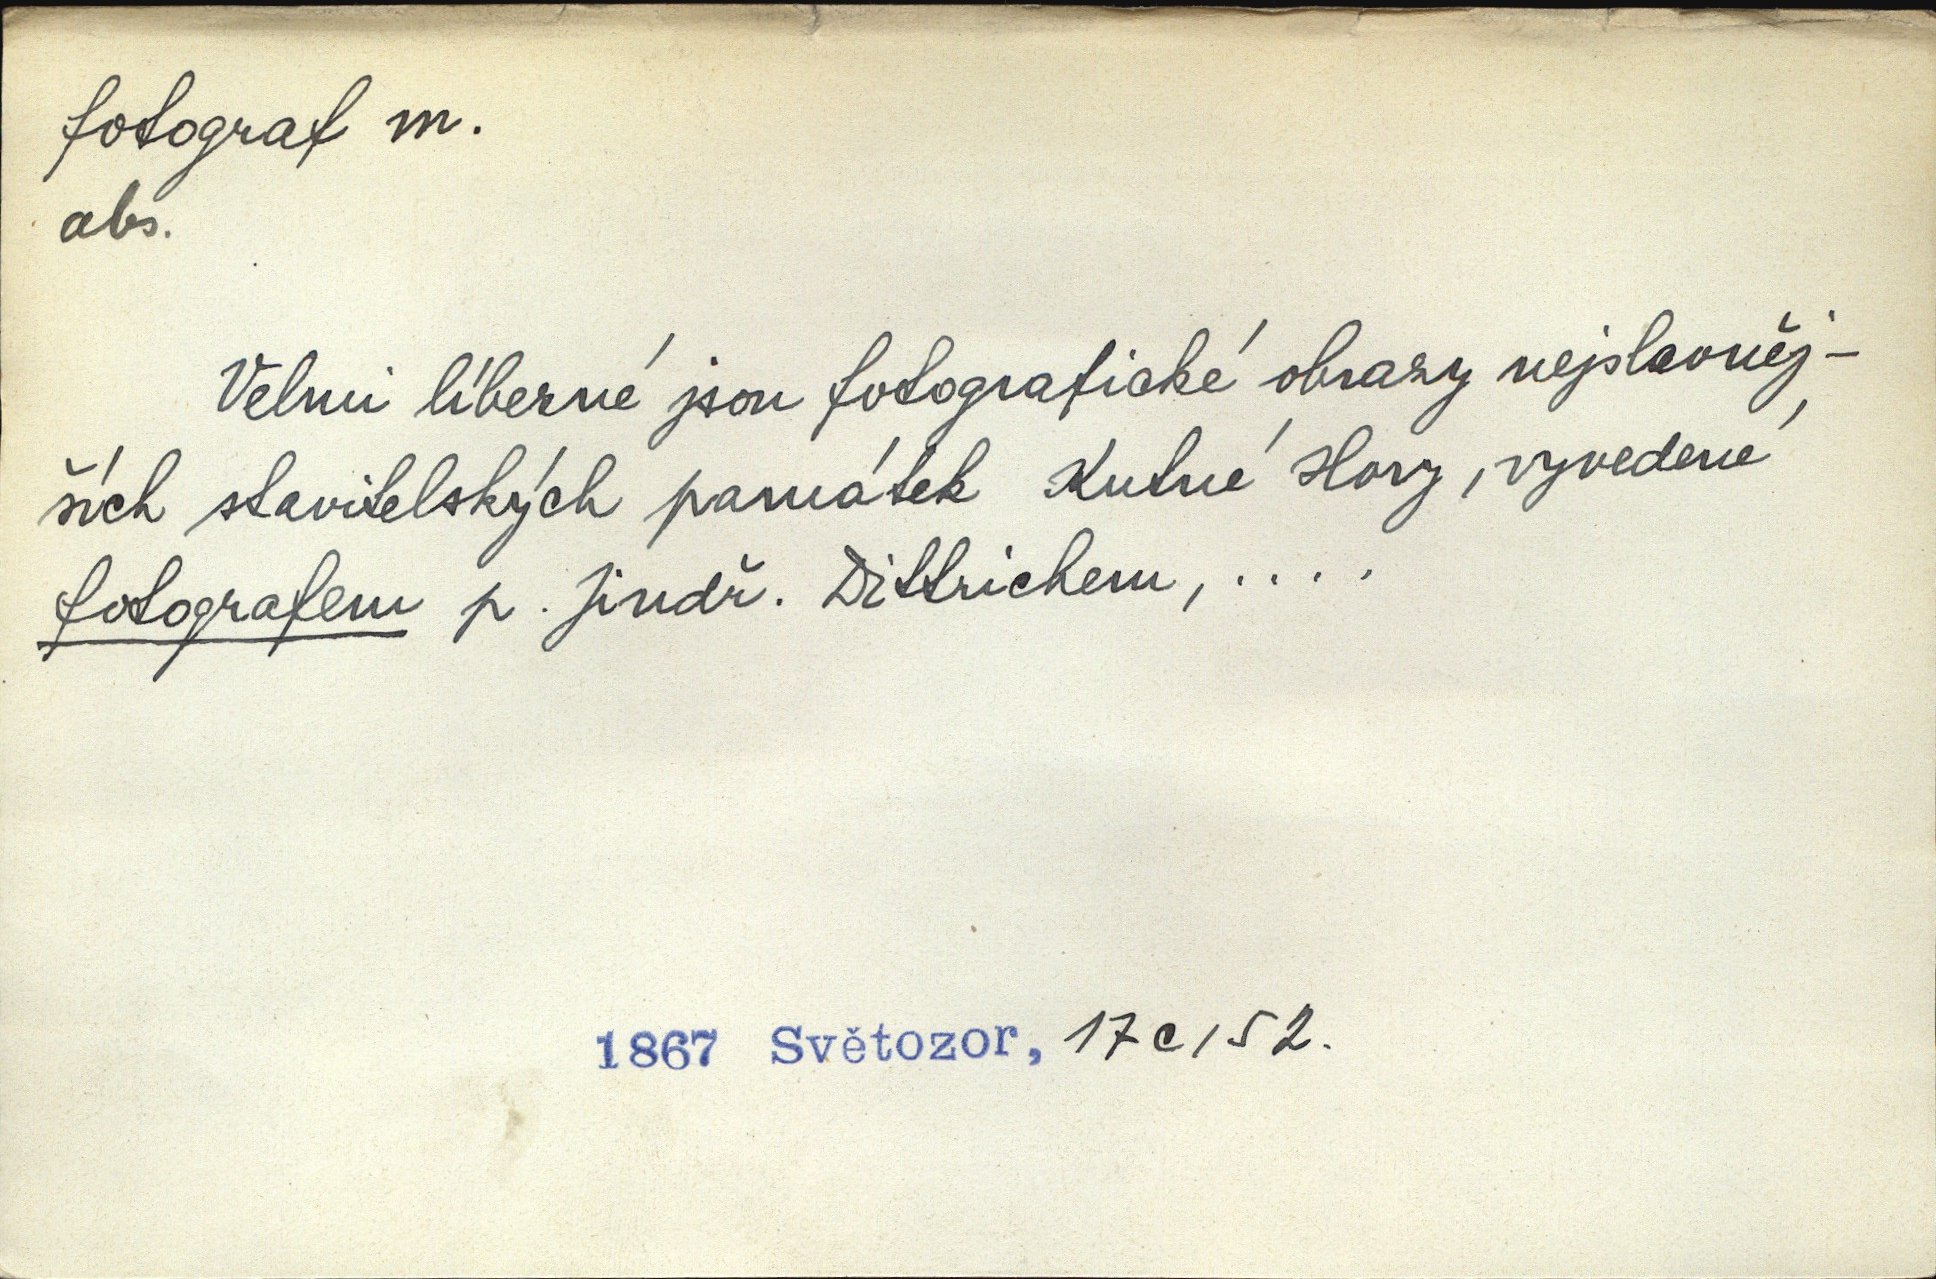 fotograf m.
abs.
Velmi líberné jsou fotografické obrazy nejslavněj-
ších stavitelských památek Kutné Hory, vyvedené
fotografem p. Jindř. Dittrichem, ....
1867 Světozor, 17c/52.